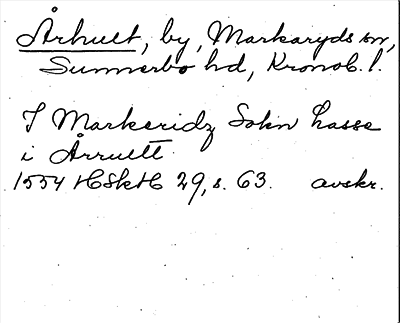 Århult, by, Markaryds sn,
Sunnerbo hd, Kronob. l.
I Markeridz Sokn Lasse
i Årrultt
1554 HSkH 29, s. 63. avskr.